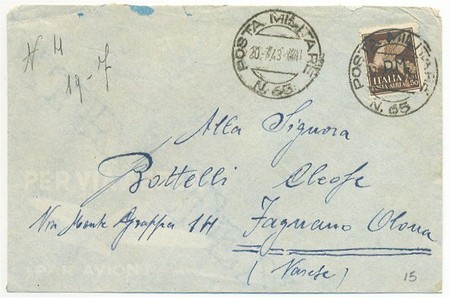 N 14
19-7
POSTA MILITARE
20.7.43
N. 65
POSTA MILITARE
N. 65
P.M.
ITALIA
POSTA AEREA 50
Alla Signora
Bottelli Cleofe
Via Monte Grappa 14
Fagnano Olona
(Varese)
PAR AVION
15